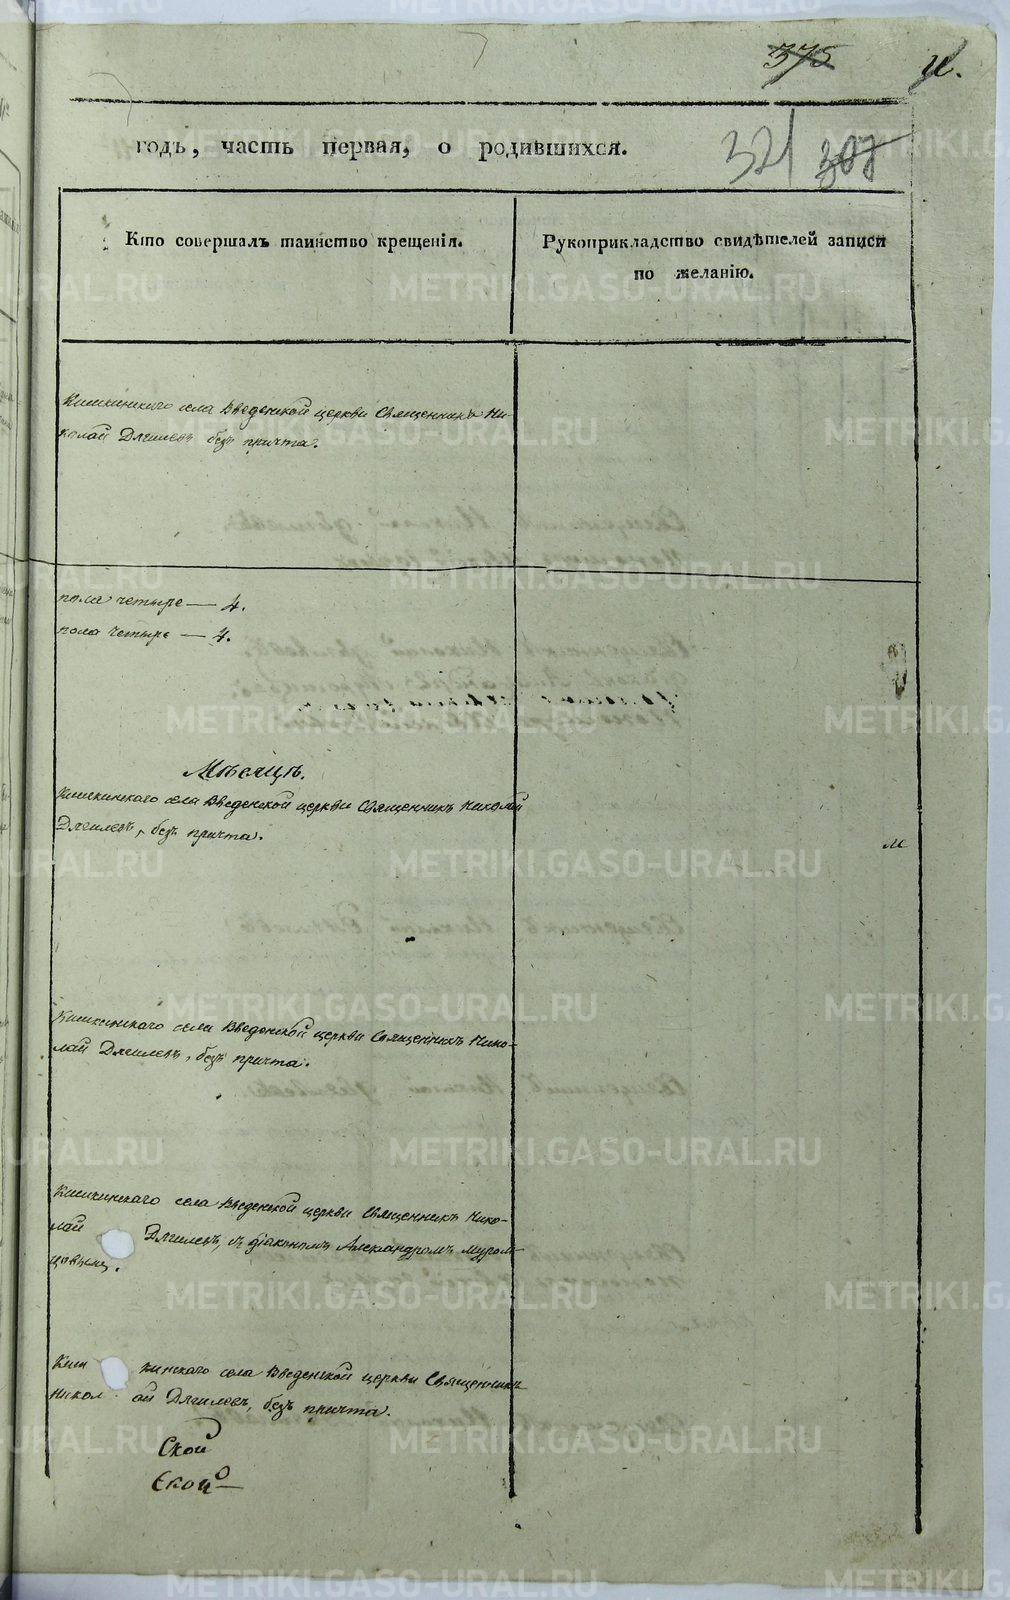 375
годъ, часть первая, о родившихся.
321 307
Кто совершалъ таинство крещенія.
Рукоприкладство свидѣтелей записи
по желанію.
Кишкинскаго села Введенской церкви Священникъ Ни-
колай Дягилевъ безъ причта.
пола четыре — 4.
пола четыре — 4.
Мѣсяцъ.
Кишкинскаго села Введенской церкви Священникъ Николай
Дягилевъ, безъ причта.
Кишкинскаго села Введенской церкви Священникъ Нико-
лай Дягилевъ, безъ причта.
Кишкинскаго села Введенской церкви Священникъ Нико-
лай Дягилевъ, съ діакономъ Александромъ Муром-
цовымъ.
Киш кинскаго села Введенской церкви Священникъ
Никол ай Дягилевъ, безъ причта.
Ской
Ской
METRIKI.GASO-URAL.RU